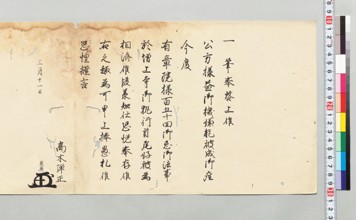 一筆奉啓上候
公方様益御機嫌能被成御座
今度
有章院様百五十回御忌御法事
於増上寺御執行首尾好被為
相済候段奉恐悦候
右之趣為可申上捧愚札候
恐惶謹言
三月十一日
高木